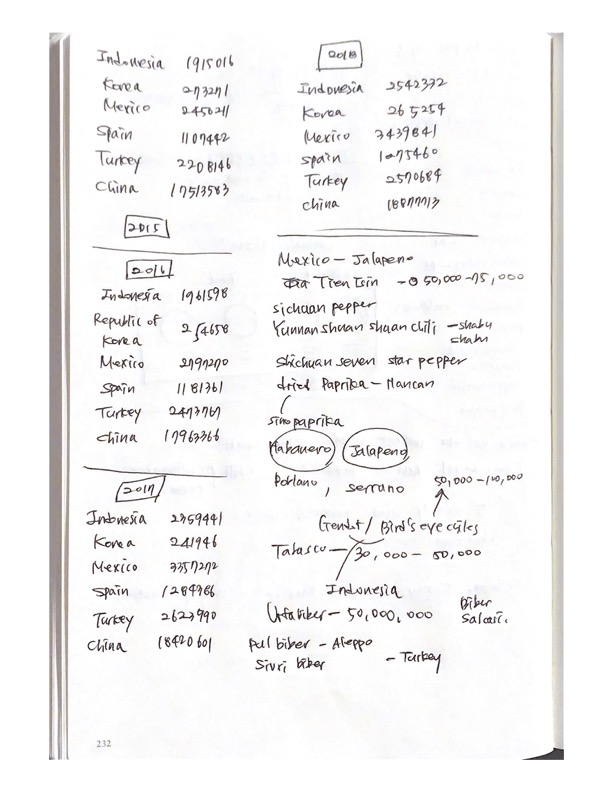 Indonesia 1915016
Korea 273271
Mexico 2456211
Spain 1107442
Turkey 2208146
China 17513583
2015
2016
Indonesia 1961598
Republic of
Korea 254658
Mexico 2797270
Spain 1181361
Turkey 2473767
China 17963366
2017
Indonesia 2359441
Korea 241946
Mexico 3357272
Spain 1284986
Turkey 2623990
China 18420601
2018
Indonesia 2542332
Korea 265254
Mexico 3439841
Spain 1275460
Turkey 2570684
China 18877713
Mexico - Jalapeno
Tien Tsin - 50,000 - 75,000
sichuan pepper
Yunnan shuan shuan chili - shabu
shabu
Shichuan seven star pepper
dried Paprika - Hancan
sinopaprika
Habanero Jalapeno
Poblano, serrano 50,000 - 100,000
Gendot / Bird's eye
Tabasco - 30,000 - 50,000
Indonesia
Urfa biber - 50,000,000 Biber
Pul biber - Aleppo
Sivri biber - Turkey
232